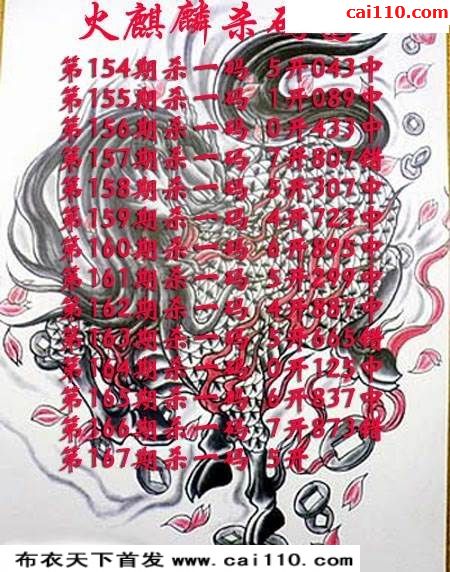 cai110.com
火麒麟杀码
第154期杀一码 5开043中
第155期杀一码 1开089中
第156期杀一码 0开433中
第157期杀一码 7开807错
第158期杀一码 5开307中
第159期杀一码 4开723中
第160期杀一码 6开895中
第161期杀一码 5开299中
第162期杀一码 4开887中
第163期杀一码 5开665错
第164期杀一码 0开125中
第165期杀一码 6开837中
第166期杀一码 7开873错
第167期杀一码 5开
布衣天下首发 www.cai110.com